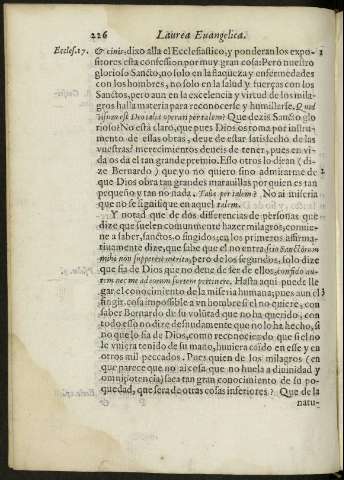 226 Laurea Euangelica.
Eccles. 17. & cinis, dixo alla el Ecclesiastico, y ponderan los expo- 1
sitores esta confession por muy gran cosa: Pero nuestro
glorioso Sancto, no solo en la flaqueza y enfermedades
con los hombres, no solo en la salud y fuerças con los
Sanctos, pero aun en la excelencia y virtud de los mila-
gros halla materia para reconocerse y humillarse. Quod
signum est Deo talia operari per talem? Que dezis Sancto glo
rioso? No està claro, que pues Dios os toma por instru-
mento de essas obras, deue de estar satisfecho de las
vuestras? merecimientos deueis de tener, pues en vi-
da os da el tan grande premio. Esso otros lo diran (di-
ze Bernardo) que yo no quiero sino admirarme de 2
que Dios obra tan grandes marauillas por quien es tan
pequeño y tan no nada. Talia per talem? No ai miseria
que no se signifique en aquel talem.
Y notad que de dos differencias de personas que
dize que suelen comunmente hazer milagros, conuie-
ne a saber, sanctos, o fingidos; en los primeros affirma-
tiuamente dize, que sabe que el no entra, scio Sanctorum
mihi non suppetere merita, pero de los segundos, solo dize
que fia de Dios que no deue de ser de ellos, confido au-
tem nec me ad eorum sortem pertinere. Hasta aqui puede lle
gar el conocimiento de la miseria humana; pues aun el 3
fingir, cosa impossible a vn hombre si el no quiere, con
saber Bernardo de su volūtad que no ha querido, con
todo esso no dize desnudamente que no lo ha hecho, si
no que lo fia de Dios, como reconociendo que si el no
le vuiera tenido de su mano, huuiera caido en esse y en
otros mil peccados. Pues quien de los milagros (en
que parece que no ai cosa que no huela a diuinidad y
omnipotencia) saca tan gran conocimiento de su po-
quedad, que sera de otras cosas inferiores? Que de la
natu-